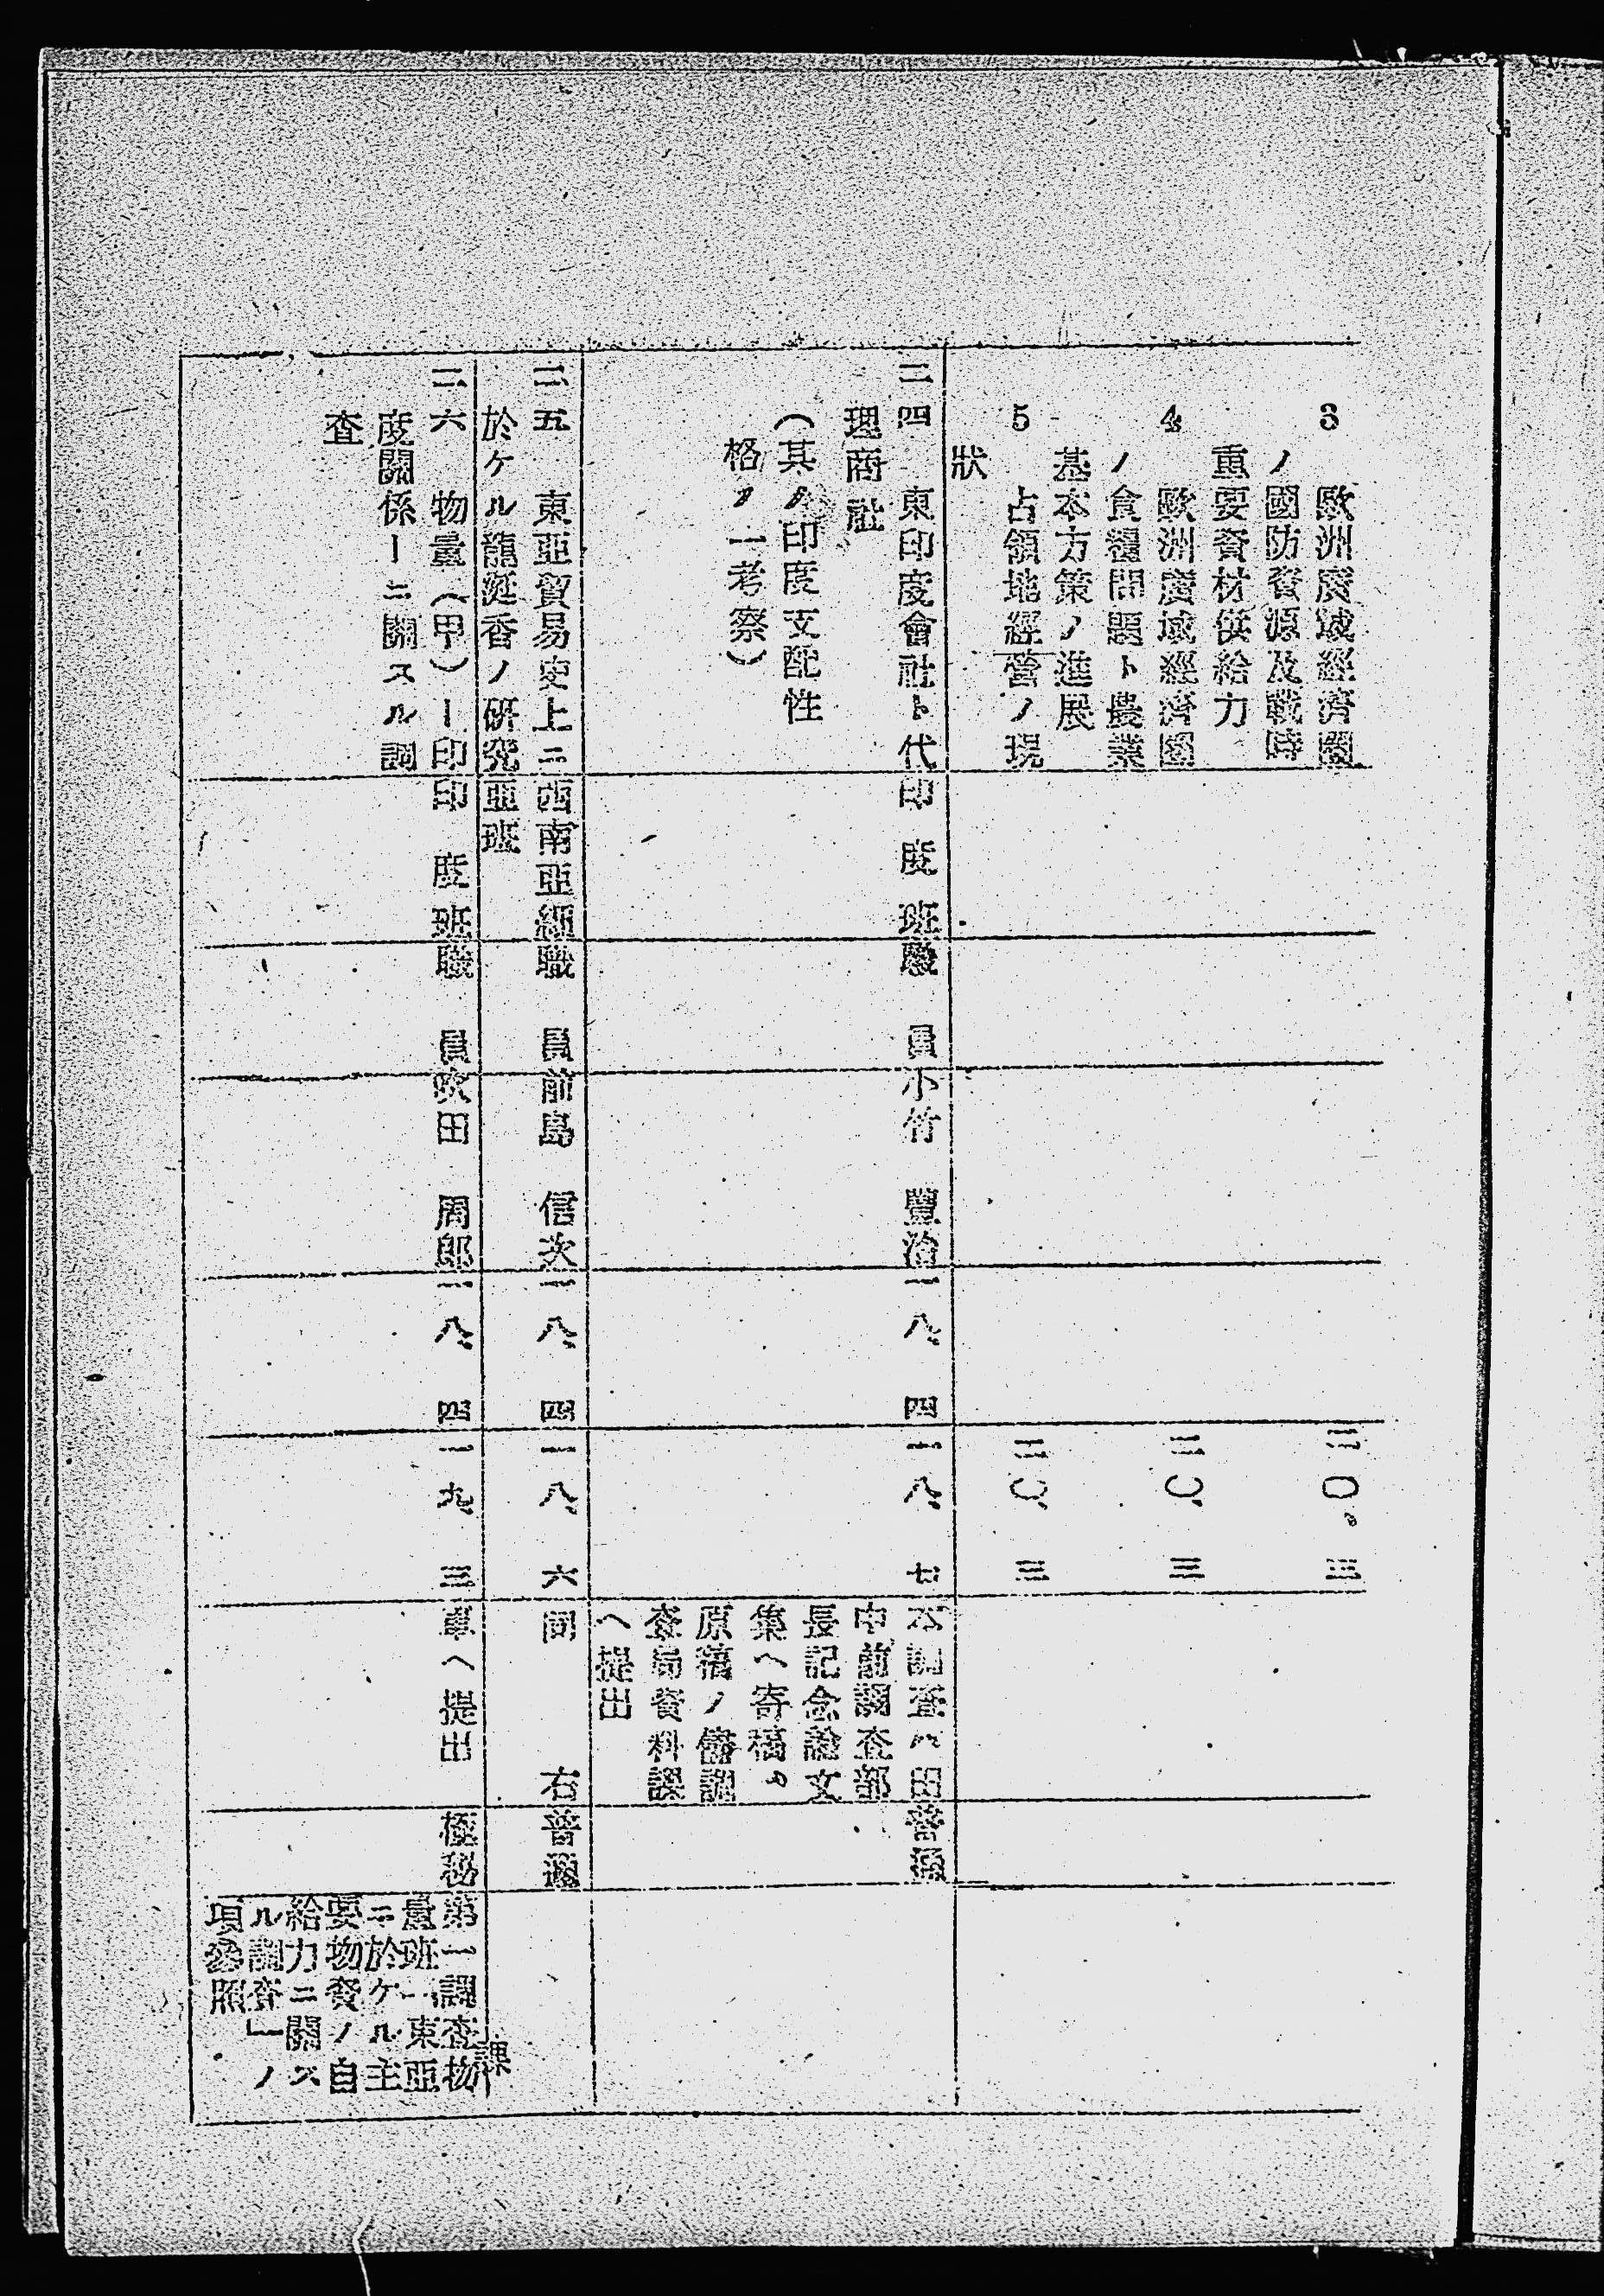 3 歐洲廣域經濟圈
ノ國防資源及戰時
重要資材供給力
4 歐洲廣域經濟圈
ノ食糧問題ト農業
基本方策ノ進展
5 占領地經營ノ現
狀
二〇。三
二〇、三
二〇、三
二四 東印度會社ト代
理商社
(其ノ印度支配性
格ノ一考察)
印度班
職員
小竹 豐治
一八、四
一八、七
本調査ハ田
中前調査部
長記念論文
集ヘ寄稿。
原稿ノ儘調
査局資料課
ヘ提出
普通
二五 東亞貿易史上ニ
於ケル龍涎香ノ研究
西南亞細
亞班
職員
前島 信次
一八、四
一八、六
同 右
普通
二六 物量(甲)ー印
度關係ーニ關スル調
査
印度班
職員
吹田 周郎
一八、四
一九、三
軍ヘ提出
極秘
第一調査課物
量班「東亞
ニ於ケル主
要物資ノ自
給力ニ關ス
ル調査」ノ
項參照